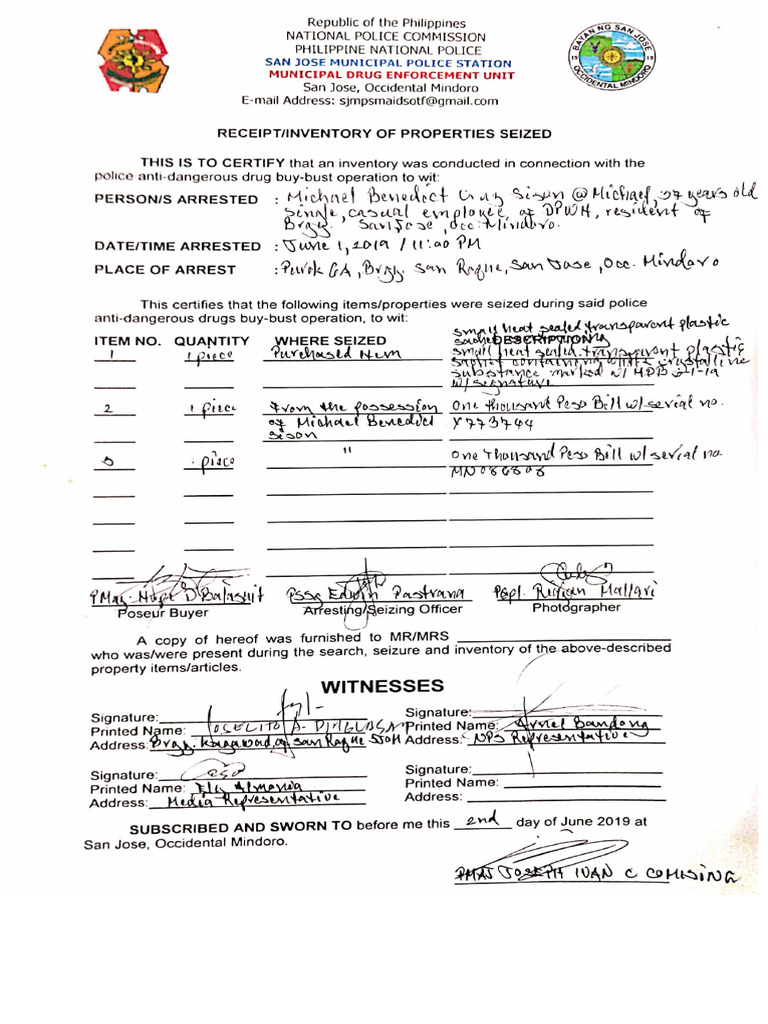 Republic of the Philippines
NATIONAL POLICE COMMISSION
PHILIPPINE NATIONAL POLICE
SAN JOSE MUNICIPAL POLICE STATION
MUNICIPAL DRUG ENFORCEMENT UNIT
San Jose, Occidental Mindoro
E-mail Address: sjmpsmaidsotf@gmail.com
BAYAN NG SAN JOSE
19 19
OCCIDENTAL MINDORO
RECEIPT/INVENTORY OF PROPERTIES SEIZED
THIS IS TO CERTIFY that an inventory was conducted in connection with the
police anti-dangerous drug buy-bust operation to wit:
PERSON/S ARRESTED : Michael Benedict Cruz Sison @ Michael, 37 years old
single, casual employee, of DPWH, resident of
Brgy. San Jose, Occ. Mindoro.
DATE/TIME ARRESTED : June 1, 2019 / 11:00 PM
PLACE OF ARREST : Purok 6A, Brgy. San Roque, San Jose, Occ. Mindoro
This certifies that the following items/properties were seized during said police
anti-dangerous drugs buy-bust operation, to wit:
small heat sealed transparent plastic
ITEM NO. QUANTITY WHERE SEIZED DESCRIPTION
1 1 piece Purchased Item small heat sealed transparent plastic
sachet containing white crystalline
substance marked w/
w/ signature
2 1 piece From the possession One thousand Peso Bill w/ serial no.
of Michael Benedict X773744
Sison
3 piece " One thousand Peso Bill w/ serial no.
MN086808
PMaj. Pssg Edwin Pastrana Pcpl. Mallari
Poseur Buyer Arresting/Seizing Officer Photographer
A copy of hereof was furnished to MR/MRS
who was/were present during the search, seizure and inventory of the above-described
property items/articles.
WITNESSES
Signature: Signature:
Printed Name: JOSELITO A. Printed Name: Arnel Bandong
Address: Brgy. Kagawad, of San Roque SJOM Address: NPS Representative
Signature: Signature:
Printed Name: Ely Almonia Printed Name:
Address: Media Representative Address:
SUBSCRIBED AND SWORN TO before me this 2nd day of June 2019 at
San Jose, Occidental Mindoro.
PMAJ JOSEPH IVAN C COMISING